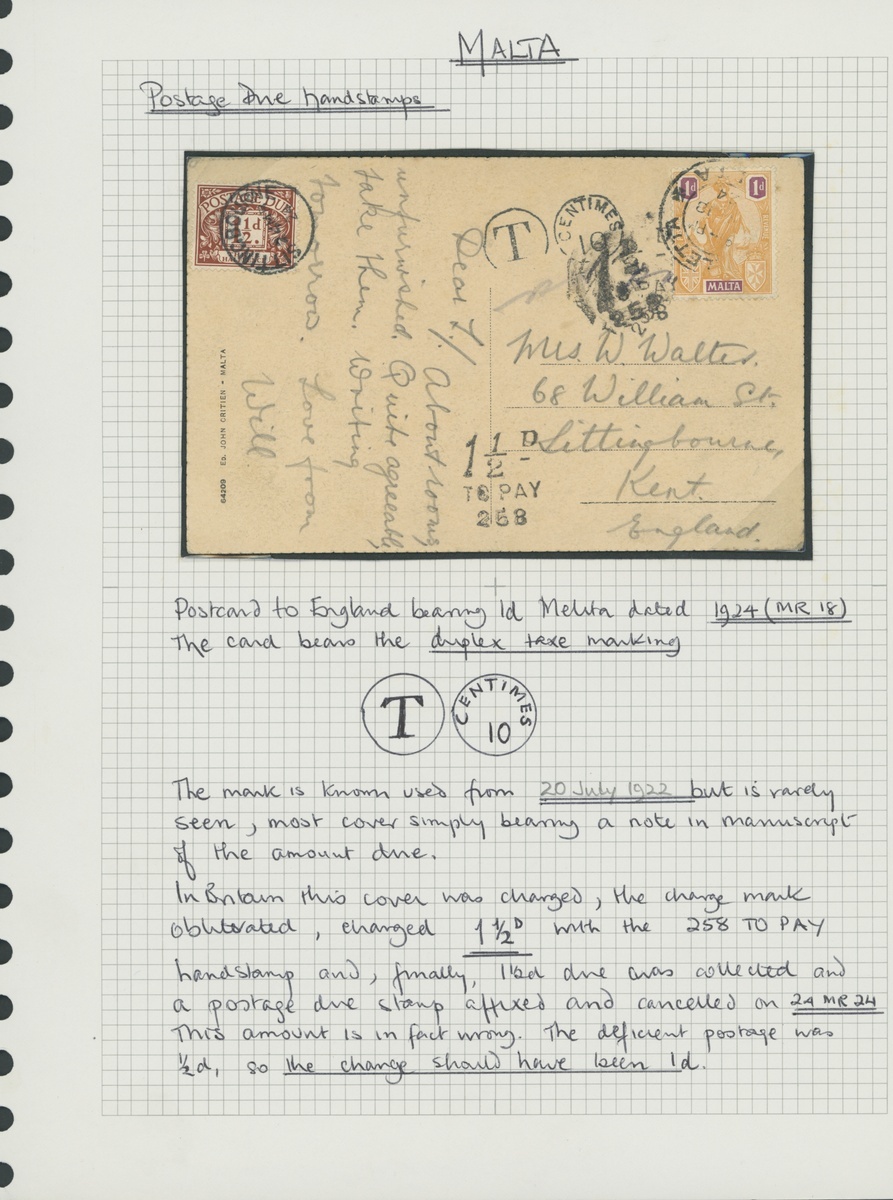 MALTA
Postage Due handstamps
POSTAGE DUE
1½d
SITTINGBOURNE
T
CENTIMES
10
1d 1d
MALTA
258
Dear L/. About rooms
unfurnished. Quite agreeable
take them. Writing
tomorrow. Love from
Will
64209 Ed. JOHN CRITIEN - MALTA
Mrs. W. Walter.
68 William St.
Sittingbourne,
Kent.
England.
1½D
TO PAY
258
Postcard to England bearing 1d Melita dated 1924 (MR 18)
The card bears the duplex taxe marking
T CENTIMES 10
The mark is known used from 20 July 1922 but is rarely
seen, most cover simply bearing a note in manuscript
of the amount due.
In Britain this cover was charged, the charge mark
obliterated, charged 1½D with the 258 TO PAY
handstamp and, finally, 1½d due was collected and
a postage due stamp affixed and cancelled on 24 MR 24
This amount is in fact wrong. The deficient postage was
½d, so the change should have been 1d.